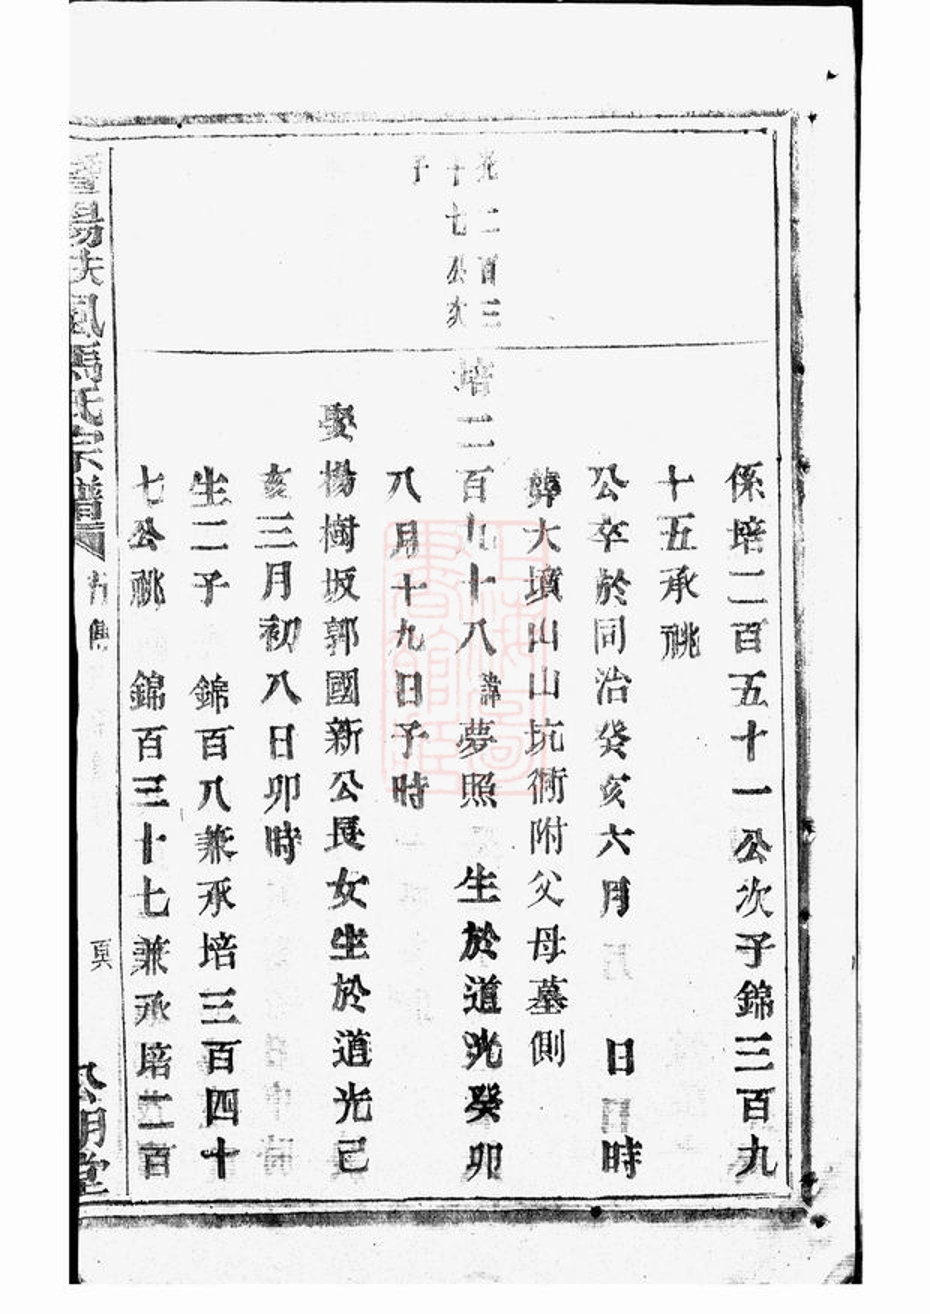 係培二百五十一公次子錦三百九
十五承祧
公卒於同治癸亥六月 日 時
葬大墳山山坑衕附父母墓側
光二百三
十七公次
子
培二百九十八諱夢照 生於道光癸卯
八月十九日子時
娶楊樹坂郭國新公長女生於道光己
亥三月初八日卯時
生二子 錦百八兼承培三百四十
七公祧 錦百三十七兼承培二百
暨陽扶風馬氏宗譜
行傳
公明堂